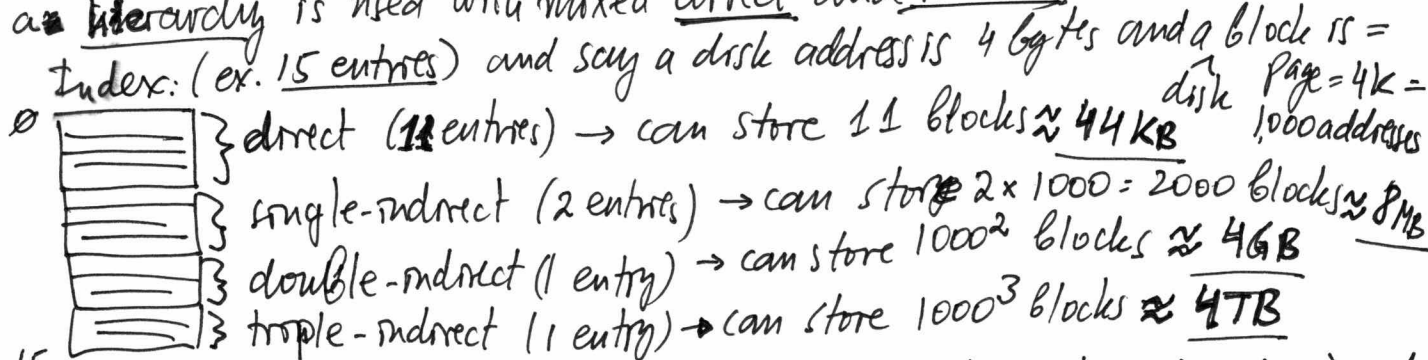 a hierarchy is used with mixed direct
Index: (ex. 15 entries) and say a disk address is 4 bytes and a block is =
disk page = 4K =
1,000 addresses
0
direct (11 entries) → can store 11 blocks ≈ 44KB
single-indirect (2 entries) → can store 2 x 1000 = 2000 blocks ≈ 8MB
double-indirect (1 entry) → can store 1000² blocks ≈ 4GB
triple-indirect (1 entry) → can store 1000³ blocks ≈ 4TB